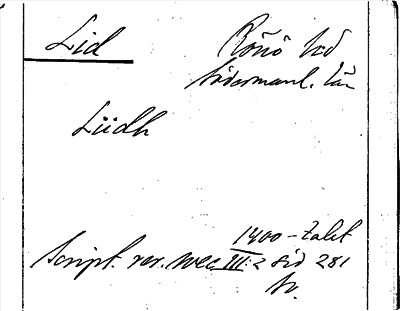 Lid
Rönö hd
Södermanl. län
Liidh
1400-talet
Script. rer. svec III:2 sid 281